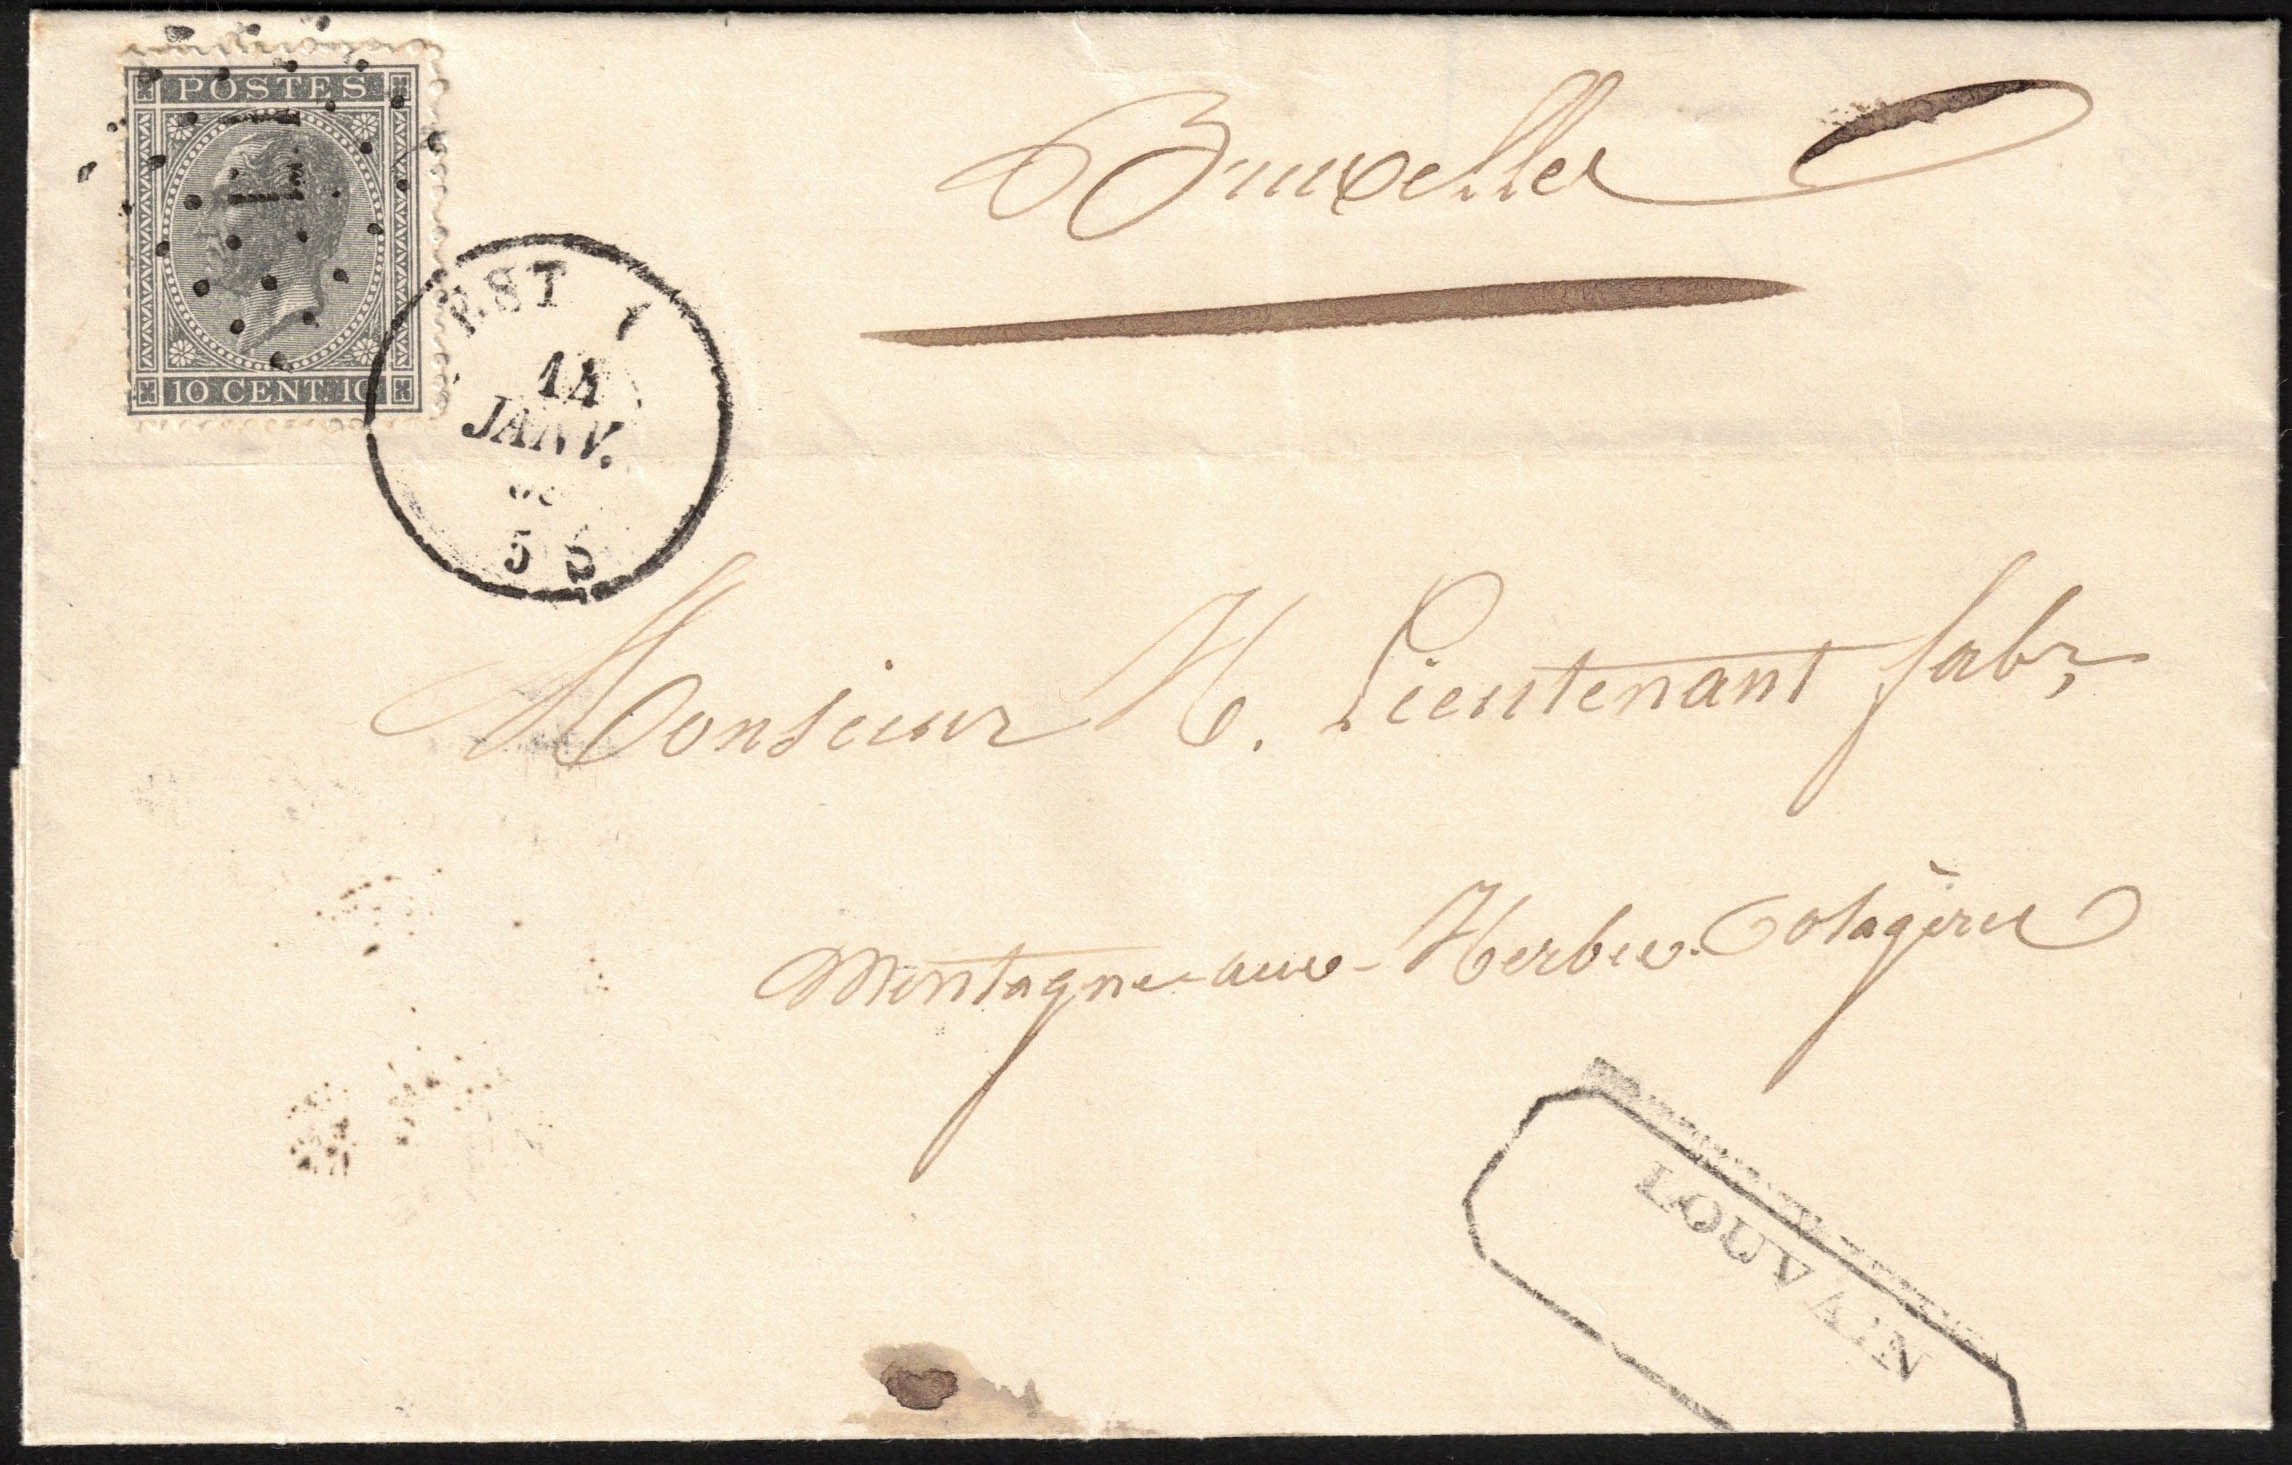 POSTES
10 CENT. 10
EST 1
14
JANV.
5 S
Bruxelles
Monsieur H. Lieutenant fabr,
Montagne-aux-Herbes-Potagères
LOUVAIN